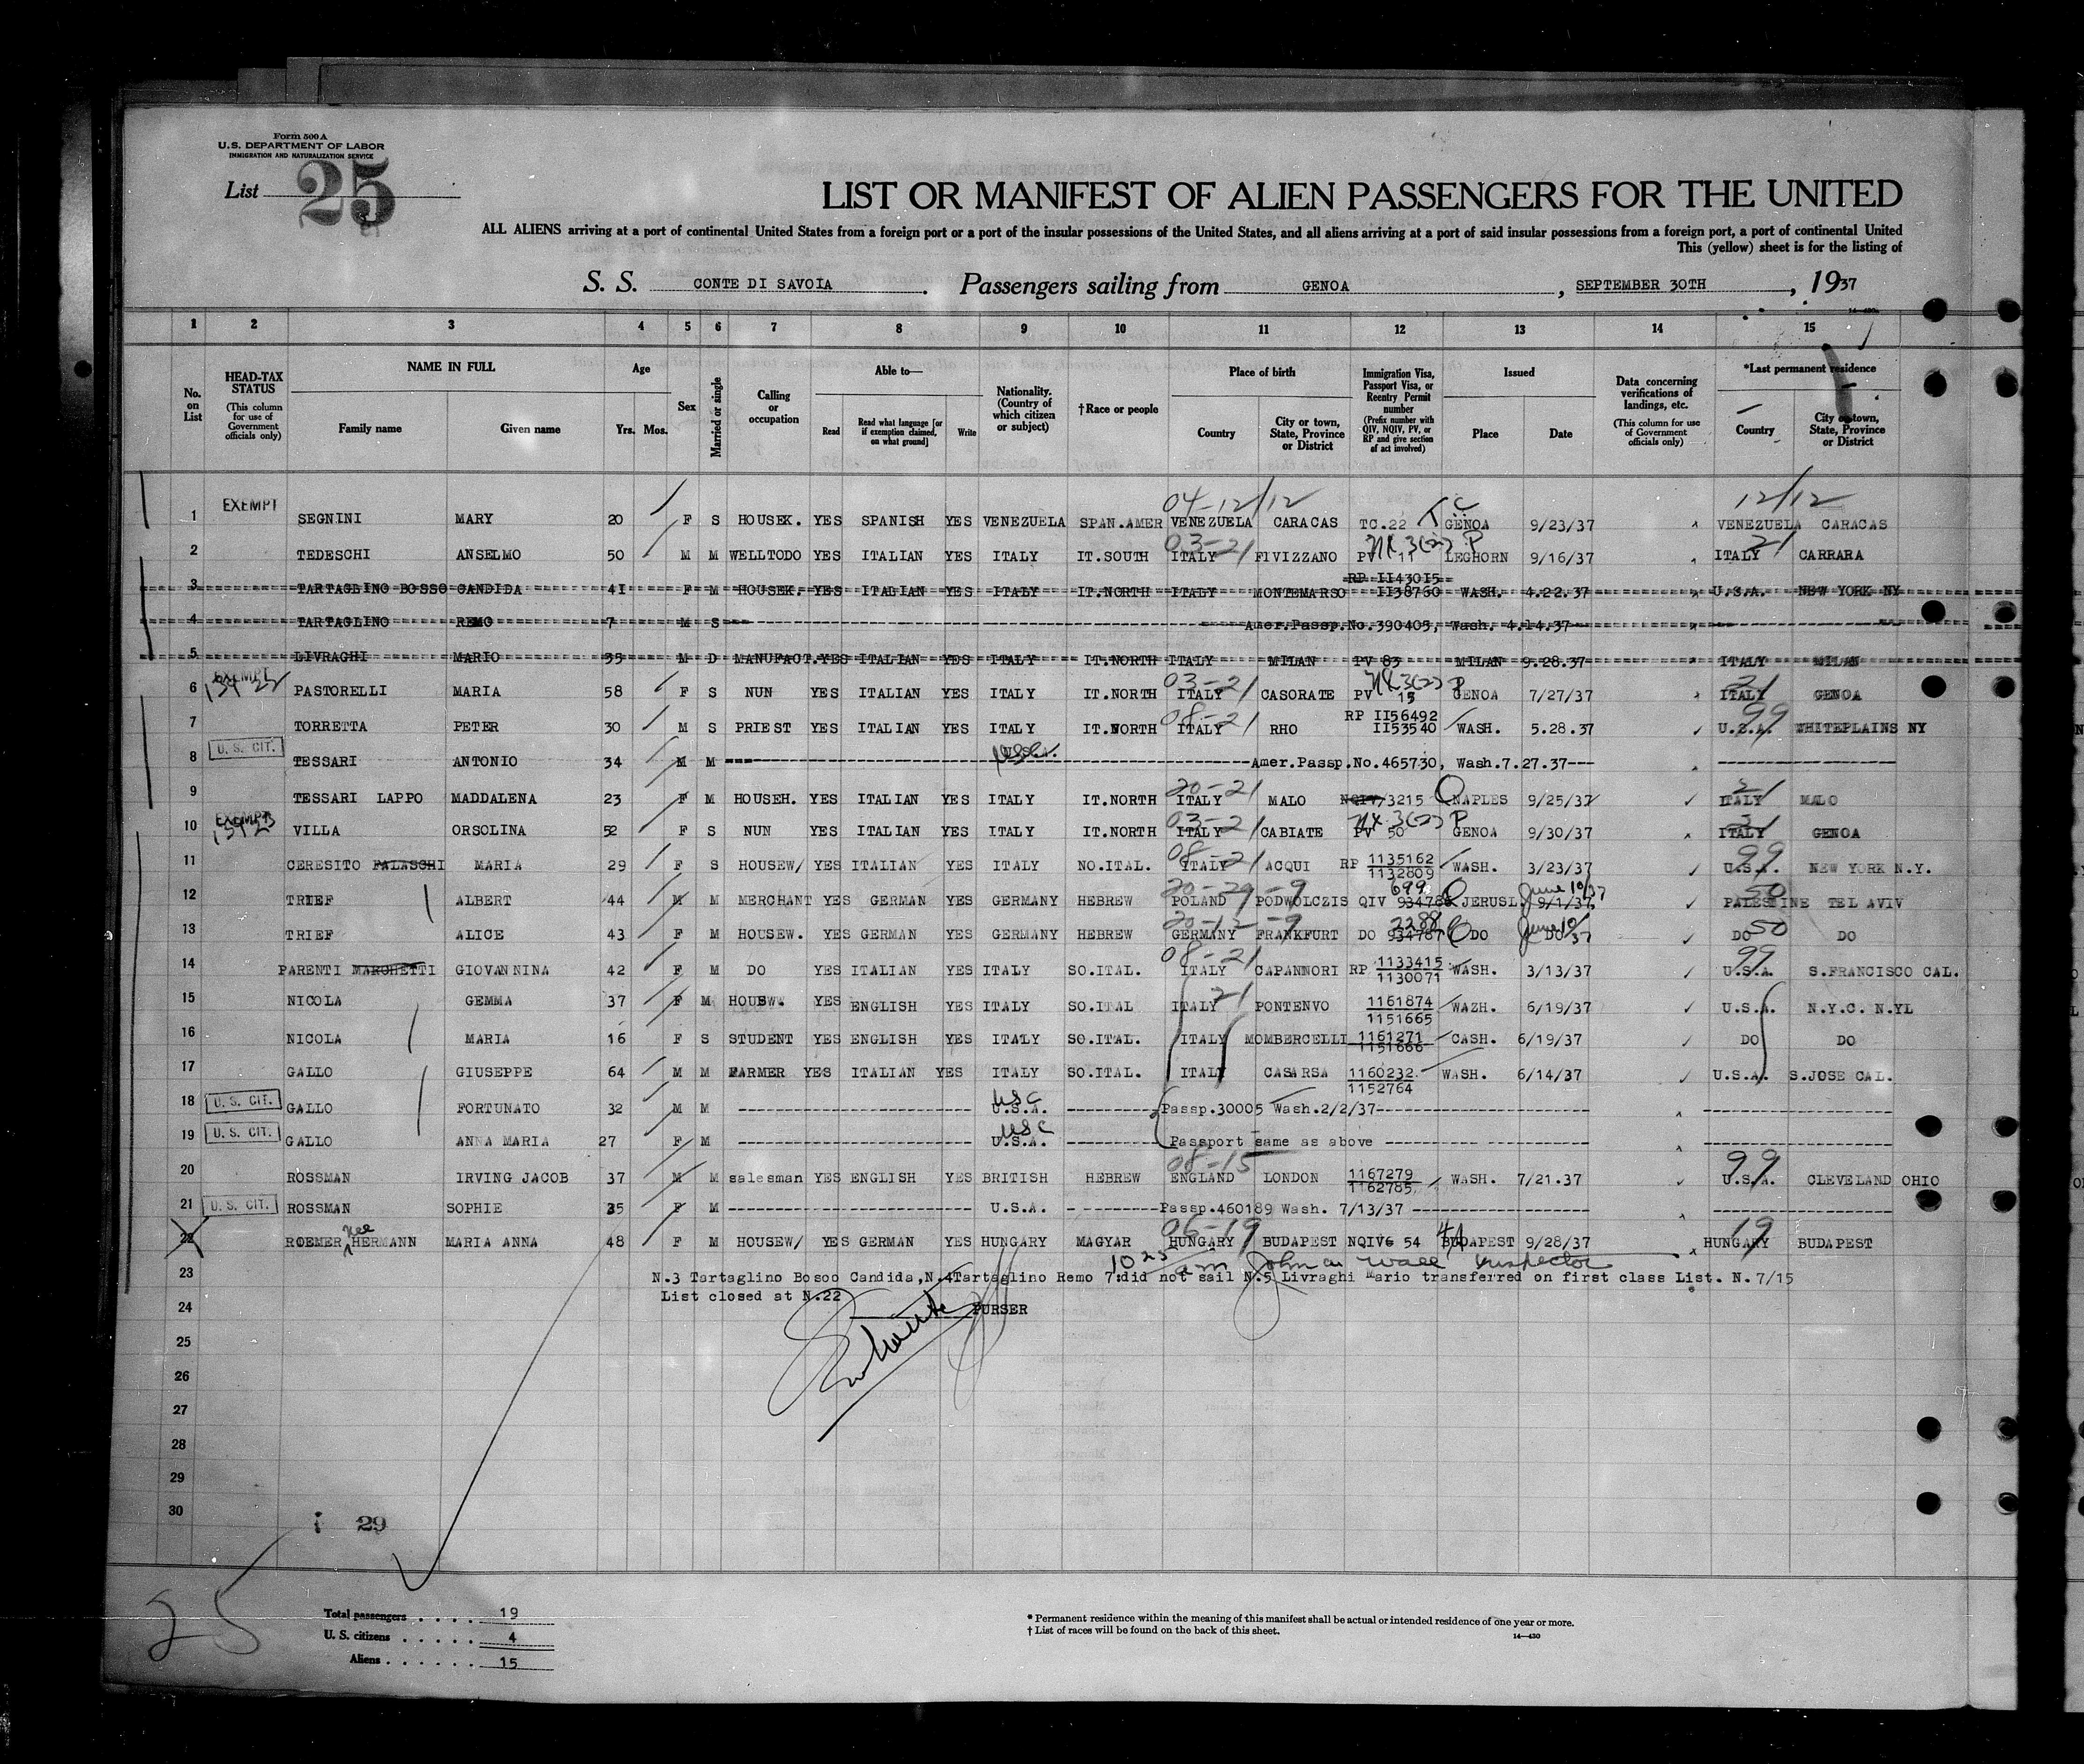 Form 500 A
U.S. DEPARTMENT OF LABOR
IMMIGRATION AND NATURALIZATION SERVICE
List 25
LIST OR MANIFEST OF ALIEN PASSENGERS FOR THE UNITED
ALL ALIENS arriving at a port of continental United States from a foreign port or a port of the insular possessions of the United States, and all aliens arriving at a port of said insular possessions from a foreign port, a port of continental United
This (yellow) sheet is for the listing of
S. S. CONTE DI SAVOIA. Passengers sailing from GENOA, SEPTEMBER 30TH, 1937
1 2 3 4 5 6 7 8 9 10 11 12 13 14 15
No. on List
HEAD-TAX STATUS (This column for use of Government officials only)
NAME IN FULL
Family name Given name
Age
Yrs. Mos.
Sex
Married or single
Calling or occupation
Able to—
Read Read what language [or if exemption claimed, on what ground] Write
Nationality. (Country of which citizen or subject)
†Race or people
Place of birth
Country City or town, State, Province or District
Immigration Visa, Passport Visa, or Reentry Permit number (Prefix number with QIV, NQIV, PV, or RP and give section of act involved)
Issued
Place Date
Data concerning verifications of landings, etc. (This column for use of Government officials only)
*Last permanent residence
Country City or town, State, Province or District
04-12/12 12/12
1 EXEMPT SEGNINI MARY 20 F S HOUSEK. YES SPANISH YES VENEZUELA SPAN.AMER VENEZUELA CARACAS TC.22 GENOA 9/23/37 VENEZUELA CARACAS
03-21 3(2) P 21
2 TEDESCHI ANSELMO 50 M M WELLTODO YES ITALIAN YES ITALY IT.SOUTH ITALY FIVIZZANO PV 11 LEGHORN 9/16/37 ITALY CARRARA
RP II43015
3 TARTAGLINO BOSSO CANDIDA 41 F M HOUSEK. YES ITALIAN YES ITALY IT.NORTH ITALY MONTEMARSO II38760 WASH. 4.22.37 U.S.A. NEW YORK NY
4 TARTAGLINO REMO 7 M S Amer.Passp.No.390405, Wash. 4.14.37
5 LIVRAGHI MARIO 35 M D MANUFACT. YES ITALIAN YES ITALY IT.NORTH ITALY MILAN PV 83 MILAN 9.28.37 ITALY MILAN
EXEMPT 03-21 3(2) P 21
6 PASTORELLI MARIA 58 F S NUN YES ITALIAN YES ITALY IT.NORTH ITALY CASORATE PV 15 GENOA 7/27/37 ITALY GENOA
08-21 RP II56492 99
7 TORRETTA PETER 30 M S PRIEST YES ITALIAN YES ITALY IT.NORTH ITALY RHO II53540 WASH. 5.28.37 U.S.A. WHITEPLAINS NY
U. S. CIT.
8 TESSARI ANTONIO 34 M M Amer.Passp.No.465730, Wash.7.27.37---
20-21 21
9 TESSARI LAPPO MADDALENA 23 F M HOUSEH. YES ITALIAN YES ITALY IT.NORTH ITALY MALO NQIV 3215 NAPLES 9/25/37 ITALY MALO
EXEMPT 03-21 3(2) P 21
10 VILLA ORSOLINA 52 F S NUN YES ITALIAN YES ITALY IT.NORTH ITALY CABIATE PV 50 GENOA 9/30/37 ITALY GENOA
08-21 99
11 CERESITO PALASCHI MARIA 29 F S HOUSEW/ YES ITALIAN YES ITALY NO.ITAL. ITALY ACQUI RP 1135162 1132809 WASH. 3/23/37 U.S.A. NEW YORK N.Y.
20-29-9 699 June 10/37 50
12 TRIEF ALBERT 44 M M MERCHANT YES GERMAN YES GERMANY HEBREW POLAND PODWOLCZIS QIV 934786 JERUSL. 9/1/37 PALESTINE TEL AVIV
20-12-9 2288 June 10/37 50
13 TRIEF ALICE 43 F M HOUSEW. YES GERMAN YES GERMANY HEBREW GERMANY FRANKFURT DO 934787 DO DO DO DO
08-21 99
14 PARENTI MARCHETTI GIOVANNINA 42 F M DO YES ITALIAN YES ITALY SO.ITAL. ITALY CAPANNORI RP 1133415 1130071 WASH. 3/13/37 U.S.A. S.FRANCISCO CAL.
15 NICOLA GEMMA 37 F M HOUSW. YES ENGLISH YES ITALY SO.ITAL ITALY 21 PONTENVO 1161874 1151665 WAZH. 6/19/37 U.S.A. N.Y.C. N.YL
16 NICOLA MARIA 16 F S STUDENT YES ENGLISH YES ITALY SO.ITAL. ITALY MOMBERCELLI 1161271 1151666 CASH. 6/19/37 DO DO
17 GALLO GIUSEPPE 64 M M FARMER YES ITALIAN YES ITALY SO.ITAL. ITALY CASARSA 1160232 1152764 WASH. 6/14/37 U.S.A. S.JOSE CAL.
USC
18 U. S. CIT. GALLO FORTUNATO 32 M M U.S.A. Passp.30005 Wash.2/2/37
USC
19 U. S. CIT. GALLO ANNA MARIA 27 F M U.S.A. Passport same as above
08-15 99
20 ROSSMAN IRVING JACOB 37 M M salesman YES ENGLISH YES BRITISH HEBREW ENGLAND LONDON 1167279 1162785 WASH. 7/21.37 U.S.A. CLEVELAND OHIO
21 U. S. CIT. ROSSMAN SOPHIE 35 F M U.S.A. Passp.460189 Wash. 7/13/37
nee 06-19 19
22 ROEMER HERMANN MARIA ANNA 48 F M HOUSEW/ YES GERMAN YES HUNGARY MAGYAR HUNGARY BUDAPEST NQIV6 54 BUDAPEST 9/28/37 HUNGARY BUDAPEST
10 25 am John Wall Inspector
23 N.3 Tartaglino Bosoo Candida,N.4Tartaglino Remo 7:did not sail N.5 Livraghi Mario transferred on first class List. N.7/15
List closed at N.22
24 PURSER
25
26
27
28
29
30
29
25
Total passengers . . . . 19
U. S. citizens . . . . . 4
Aliens . . . . . . 15
* Permanent residence within the meaning of this manifest shall be actual or intended residence of one year or more.
† List of races will be found on the back of this sheet.
14—430